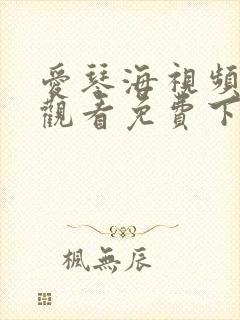 愛琴海視頻
觀看免費下
楓無辰